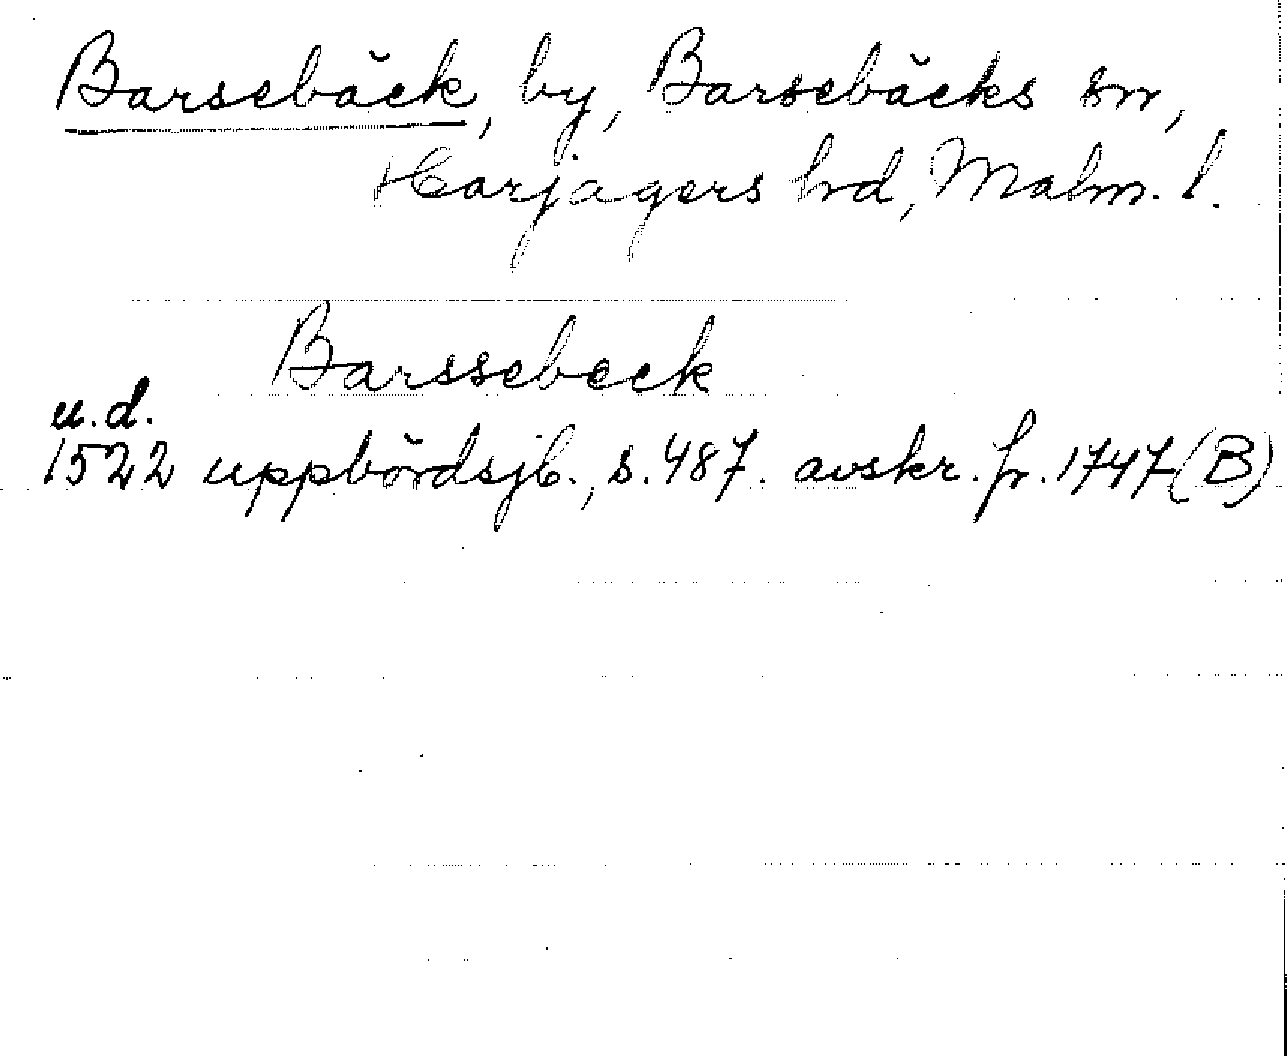 Barsebäck, by, Barsebäcks sn,
Harjagers hrd, Malm. l.
Barssebeck
u.d.
1522 uppbördsjb., s. 487. avskr. fr. 1747 (B)